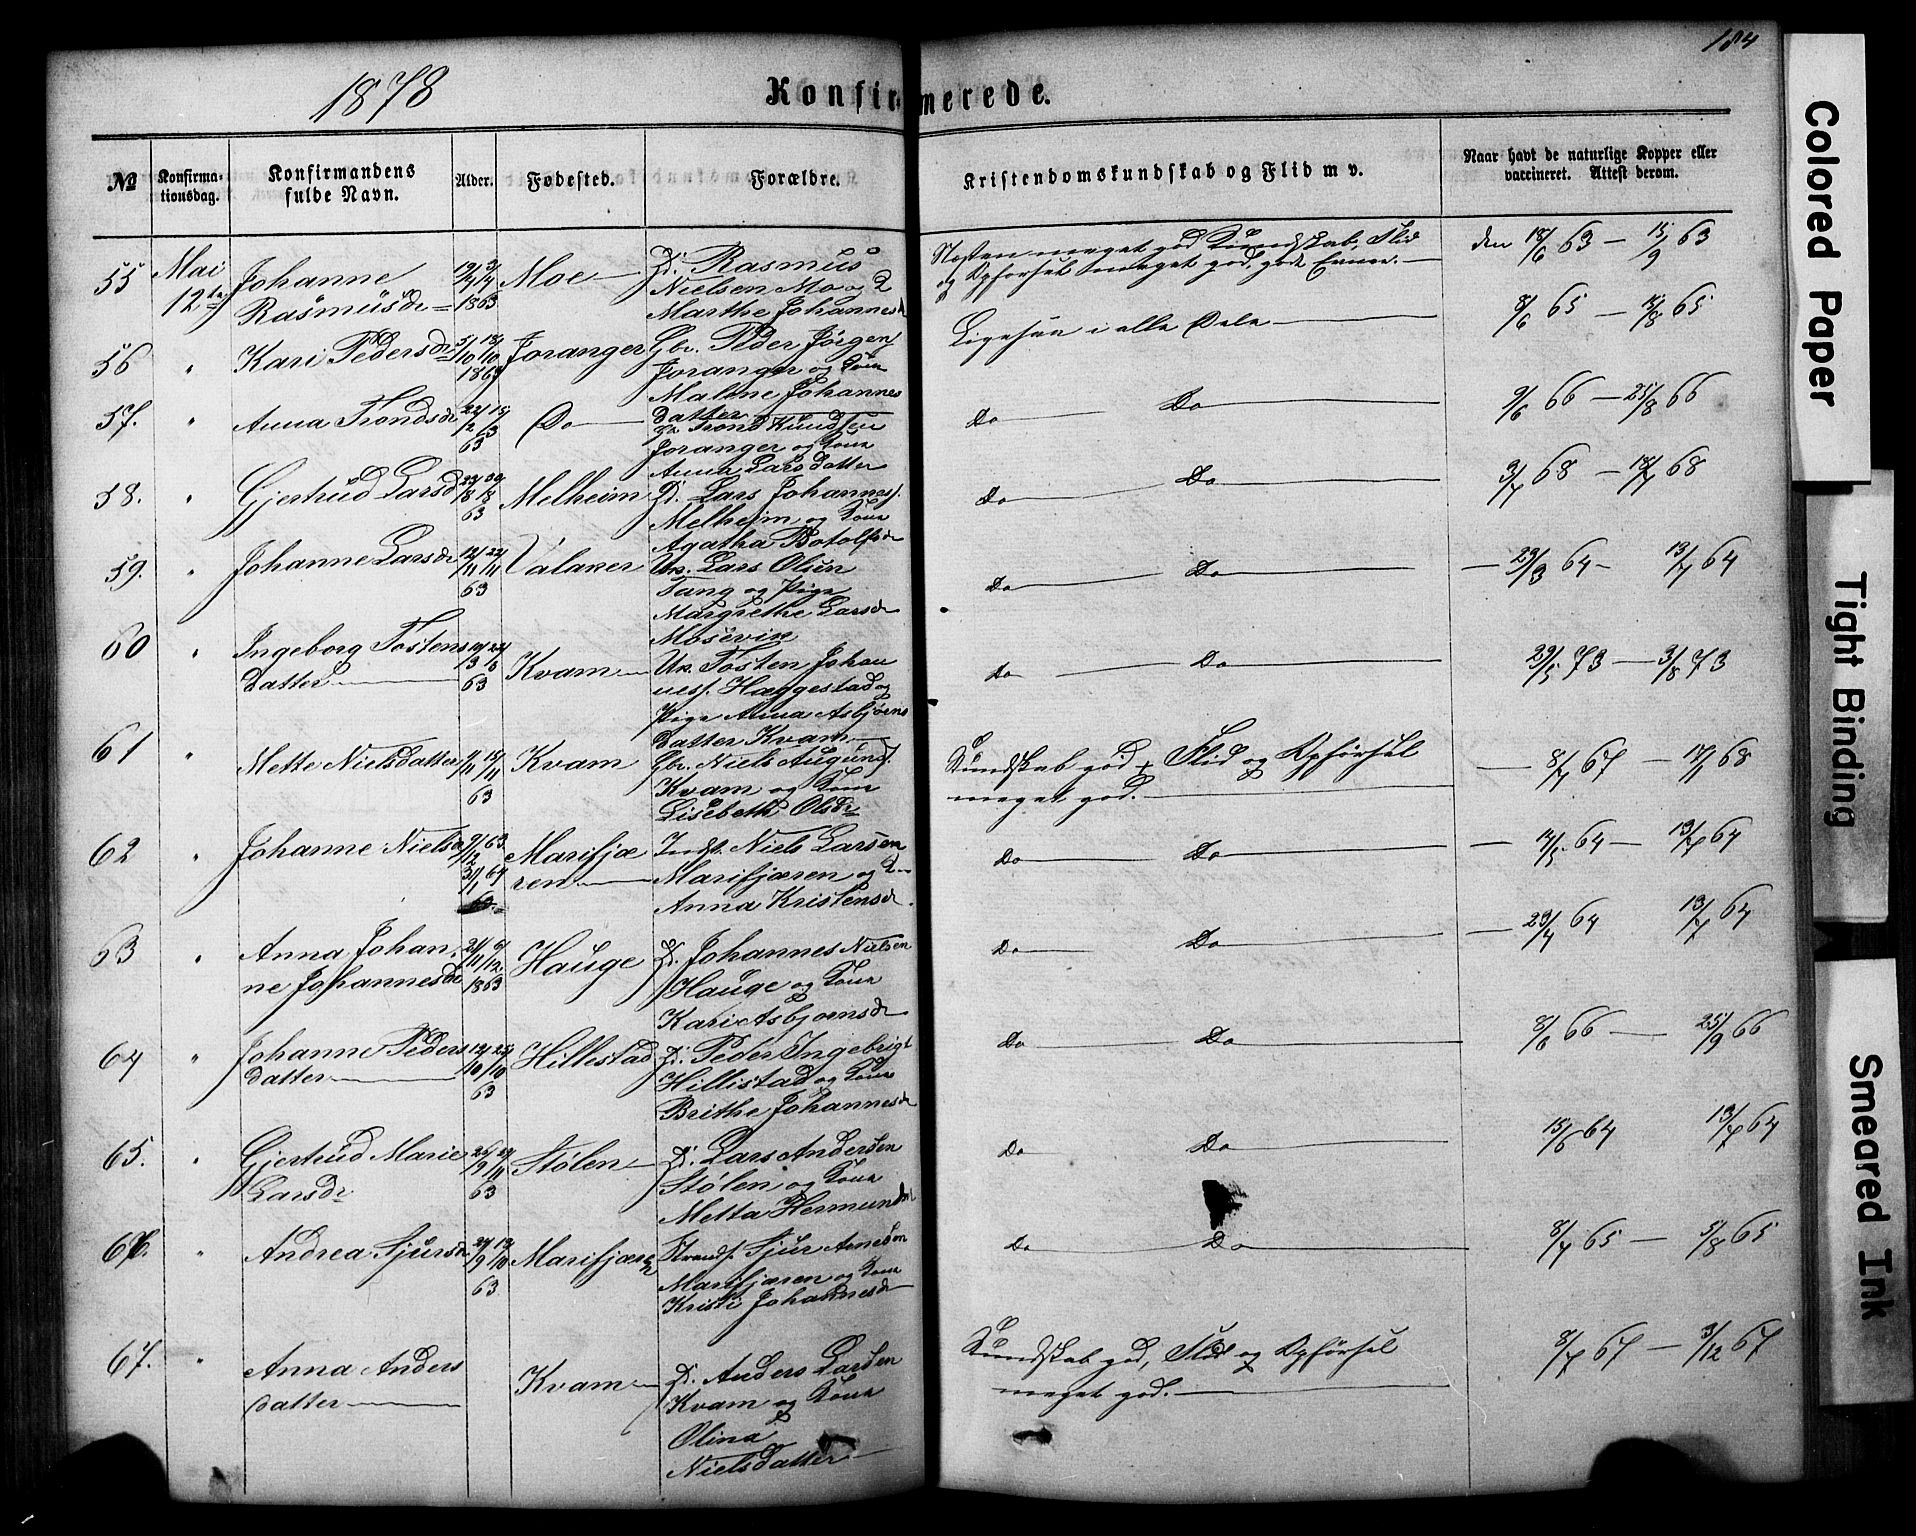 184
1878
Konfirmerede.
№
Konfirma-
tionsdag.
Konfirmandens
fulde Navn.
Alder.
Fødested.
Forældre.
Kristendomskundskab og Flid m v.
Naar havt de naturlige Kopper eller
vaccineret. Attest derom.
55
Mai
12te
Johanne
Rasmusdr
1863
Moe
Rasmus
Nielsen Mo og
Marthe Johannesd
Næsten meget god Kundskab, Flid
og Opførsel meget god, gode Evner.
den 18/6 63 — 15/9 63
56
"
Kari Pedersdr
5/10 18/10
1863
Joranger
Gbr. Peder Jørgens.
Joranger og Kone
Malene Johannes
datter
Ligesaa i alle Dele
8/6 65 — 65
57.
"
Anna Trondsdr
22/2 15/3
63
Do
Trond Knudsen
Joranger og Kone
Anna Larsdatter
Do Do
9/6 66 — 25/8 66
58.
"
Gjertrud Larsd
63
Melheim
Lars Johanness.
Melheim og Kone
Agatha Botolfsdr
Do Do
3/7 68 — 18/7 68
59.
"
Johanne Larsdr
12/11 22/11
63
Valaker
Uk. Lars Olsen
Tang og Pige
Margrethe Larsdr
Mosevin
Do Do
— 29/3 64 — 13/7 64
60
"
Ingeborg Tostens
datter
63
Kvam
Uk. Tosten Johan
ness. Haggestad og
Pige Anna Asbjørns
datter Kvam
Do Do
29/5 73 — 3/8 73
61
"
Mette Nielsdatter
1/11 15/11
63
Kvam
Gbr. Niels Augunds.
Kvam og Kone
Lisebeth Olsdr
Kundskab god, Flid og Opførsel
meget god.
— 8/7 67 — 17/1 68
62
"
Johanne Nielsd
9/12 63
31/1 64
Marifjæ
ren
Indst. Niels Larsen
Marifjæren og
Anna Kristensd
Do Do
— 14/5 64 — 13/7 64
63
"
Anna Johan
ne Johannesdr
21/11 6/12
1863
Hauge
Johannes Nielsen
Hauge og Kone
Kari Asbjørnsdr
Do Do
— 29/4 64 13/7 64
64
"
Johanne Peders
datter
12/10 25/10
63
Hillestad
Peder Ingebrigt
Hillistad og Kone
Brithe Johannesdr
Do Do
8/6 66 — 25/9 66
65.
"
Gjertrud Marie
Larsdr
63
Stølen
Lars Andersen
Stølen og Kone
Metta Hermunds
Do Do
15/6 64 13/7 64
66.
"
Andrea Sjursdr
27/9 18/10
63
Marifjæren
Strands. Sjur Arnesen
Marifjæren og Kone
Kristi Johannesdr
Do Do
8/7 65 — 5/8 65
67.
"
Anna Anders
datter
Kvam
Anders Larsen
Kvam og Kone
Olina
Nielsdatter
Kundskab god, Flid og Opførsel
meget god.
8/7 67 — 3/12 67
Colored Paper
Tight Binding
Smeared Ink